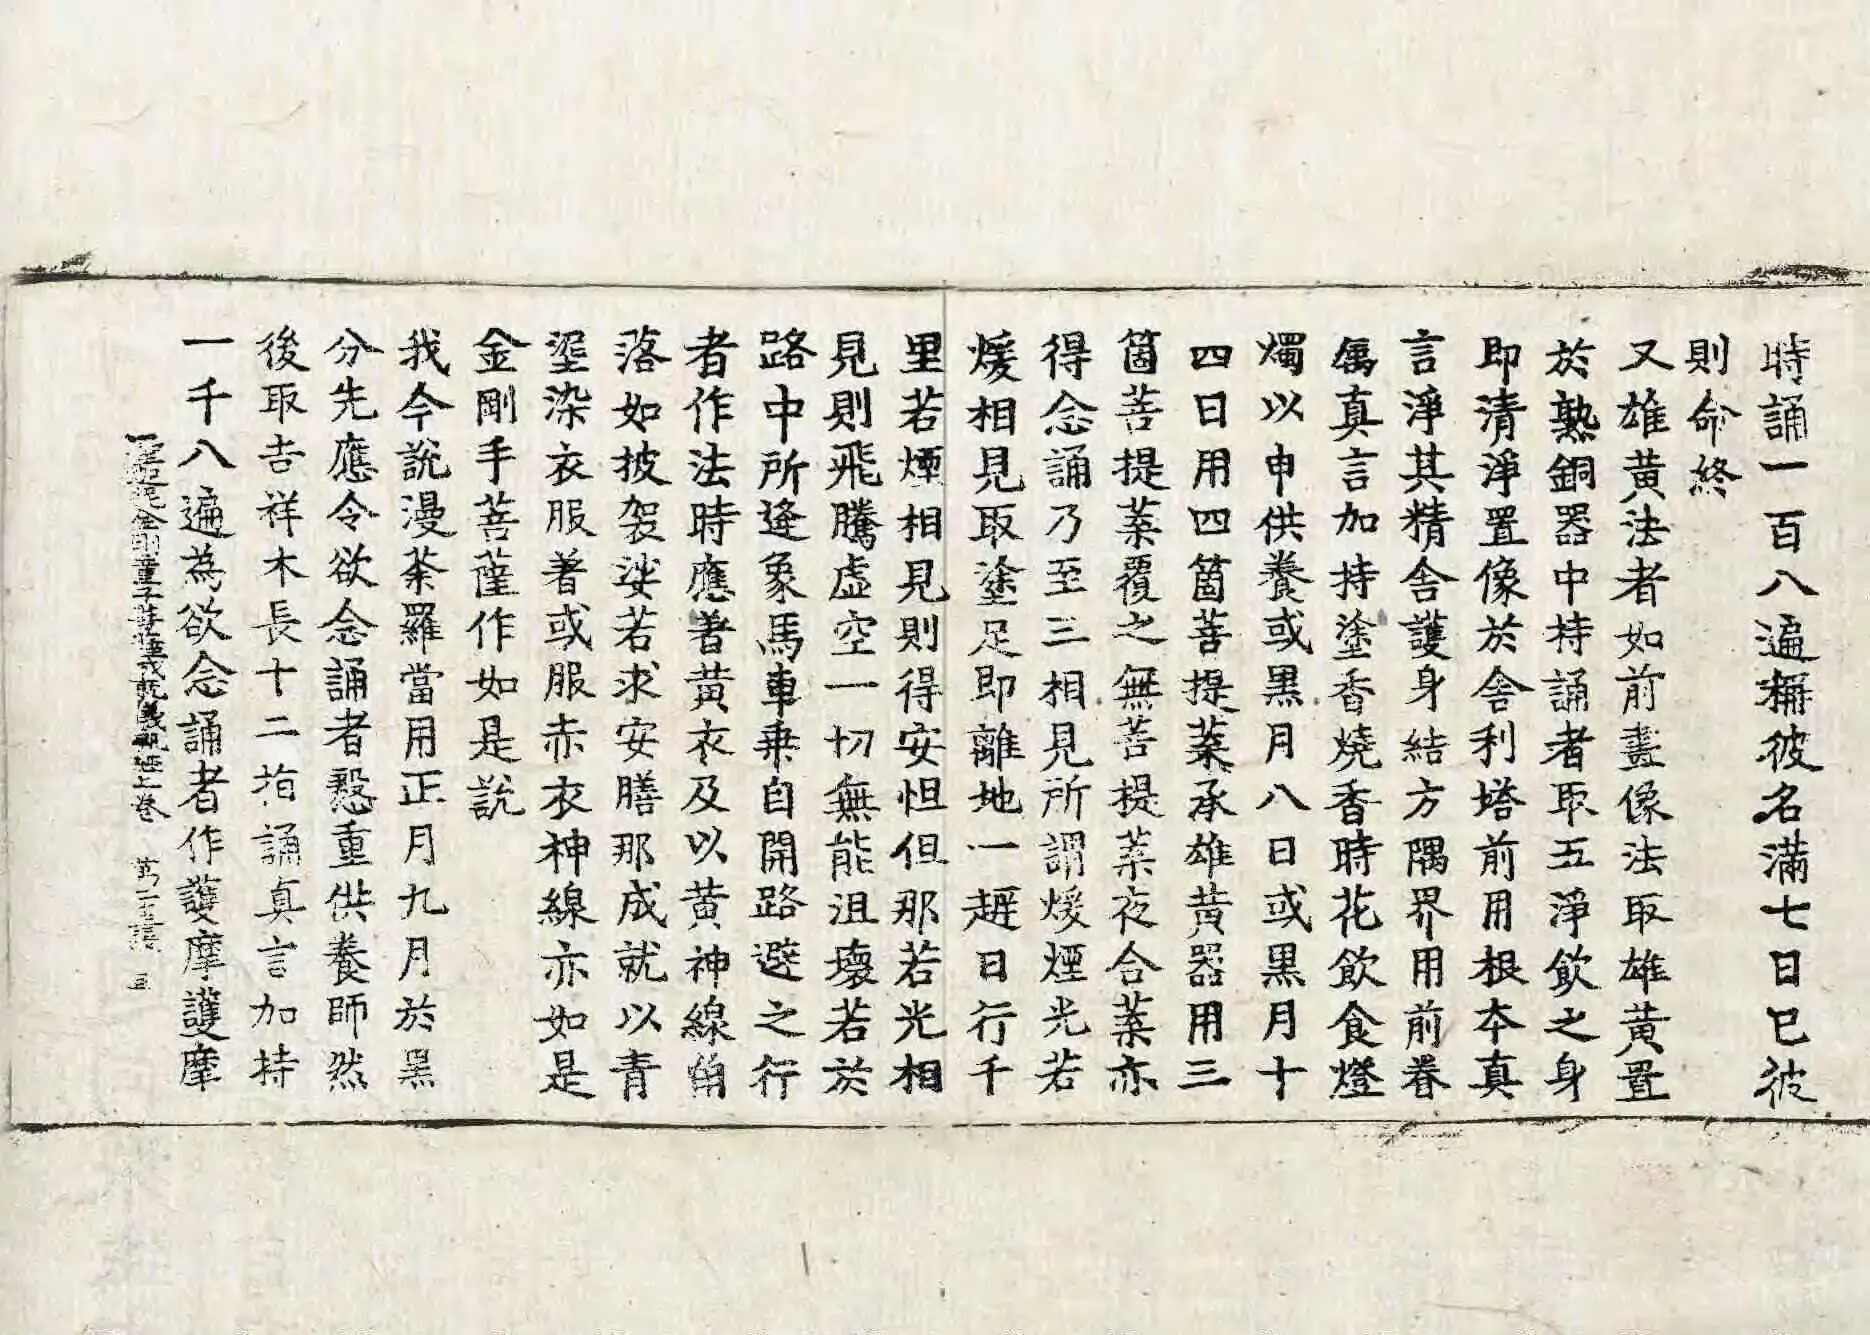 時誦一百八遍稱彼名滿七日已彼
則命終
又雄黄法者如前畫像法取雄黄置
於熟銅器中持誦者取五淨飲之身
即清淨置像於舍利塔前用根夲真
言淨其精舍護身結方隅界用前眷
属真言加持塗香燒香時花飲食燈
燭以申供養或黒月八日或黒月十
四日用四箇菩提葉承雄黄器用三
箇菩提葉覆之無菩提葉夜合葉亦
得念誦乃至三相見所謂煖煙光若
煖相見取塗足即離地一趯日行千
里若煙相見則得安怛但那若光相
見則飛騰虛空一切無能沮壞若於
路中所逢象馬車乗自開路避之行
者作法時應著黄衣及以黄神線角
落如披袈裟若求安膳那成就以青
埿染衣服著或服赤衣神線亦如是
金剛手菩薩作如是説
我今説漫荼羅當用正月九月於黒
分先應令欲念誦者慇重供養師然
後取吉祥木長十二指誦真言加持
一千八遍為欲念誦者作護摩護摩
童子菩薩成就儀軌經上卷 第二張